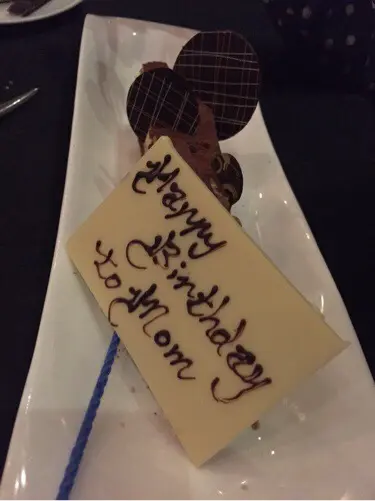 Happy
Birthday
to Mom